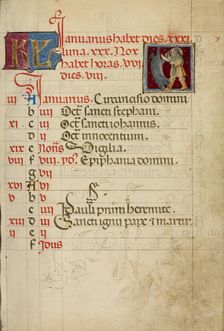 KL Ianuarius habet dies. xxxi.
Luna. xxx. Nox
habet horas. xvi.
dies. viii.
iii A Ianuarius. Circuncisio domini
b Oct' sancti stephani.
xi c Oct' sancti iohannis.
d Oct' innocentium.
xix e Nonis Vigilia.
viii f viii. yd' Epiphania domini.
g
xvi A
v b
c Pauli primi heremite.
xiii d
ii e
f Idus